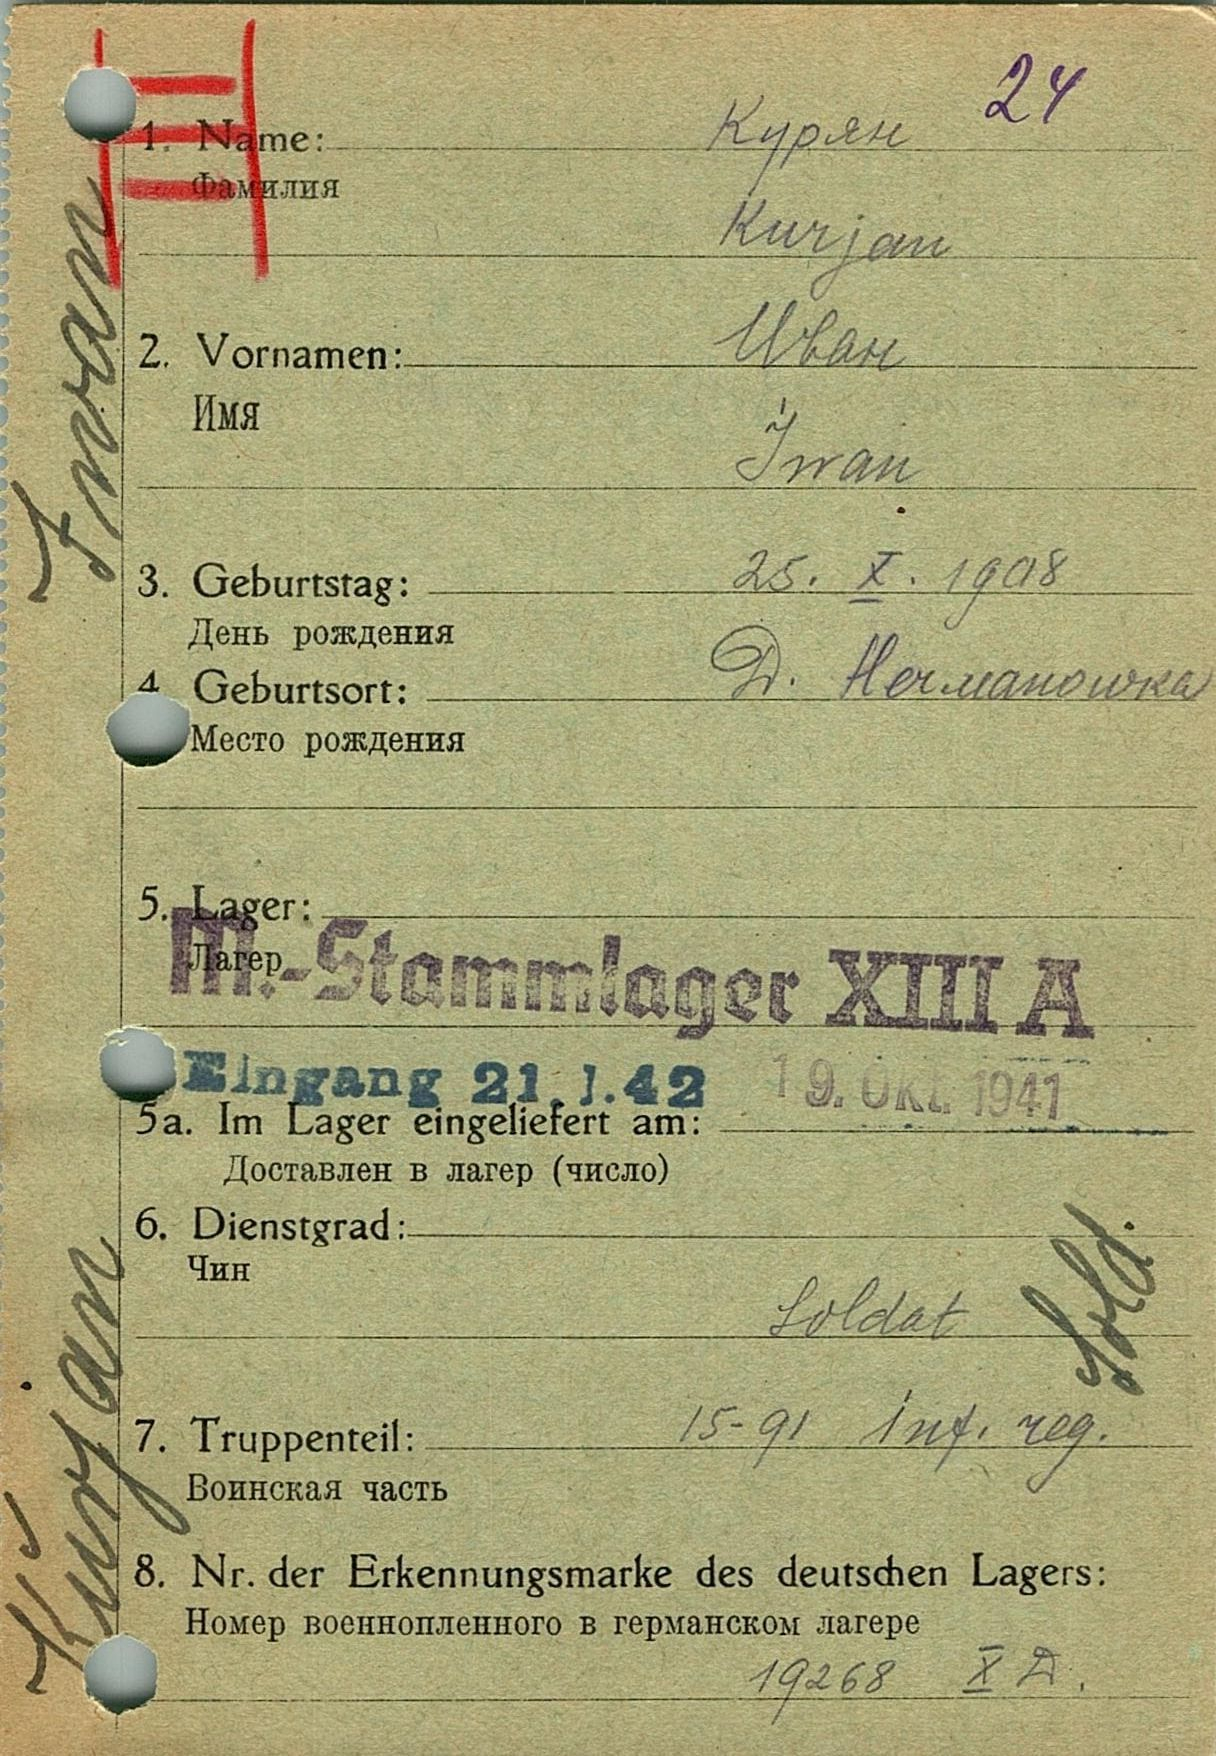 24
1. Name: Курян
Фамилия
Kurjan
2. Vornamen: Иван
Имя
Iwan
3. Geburtstag: 25. X. 1908
День рождения
4. Geburtsort: D. Hermanowka
Место рождения
5. Lager:
Лагер
M.-Stammlager XIII A
Eingang 21. 1. 42 19. Okt. 1941
5a. Im Lager eingeliefert am:
Доставлен в лагер (число)
6. Dienstgrad:
Чин
Soldat
Sold.
7. Truppenteil: 15-91 inf. reg.
Воинская часть
8. Nr. der Erkennungsmarke des deutschen Lagers:
Номер военнопленного в германском лагере
19268 X D.
Kurjan
Iwan